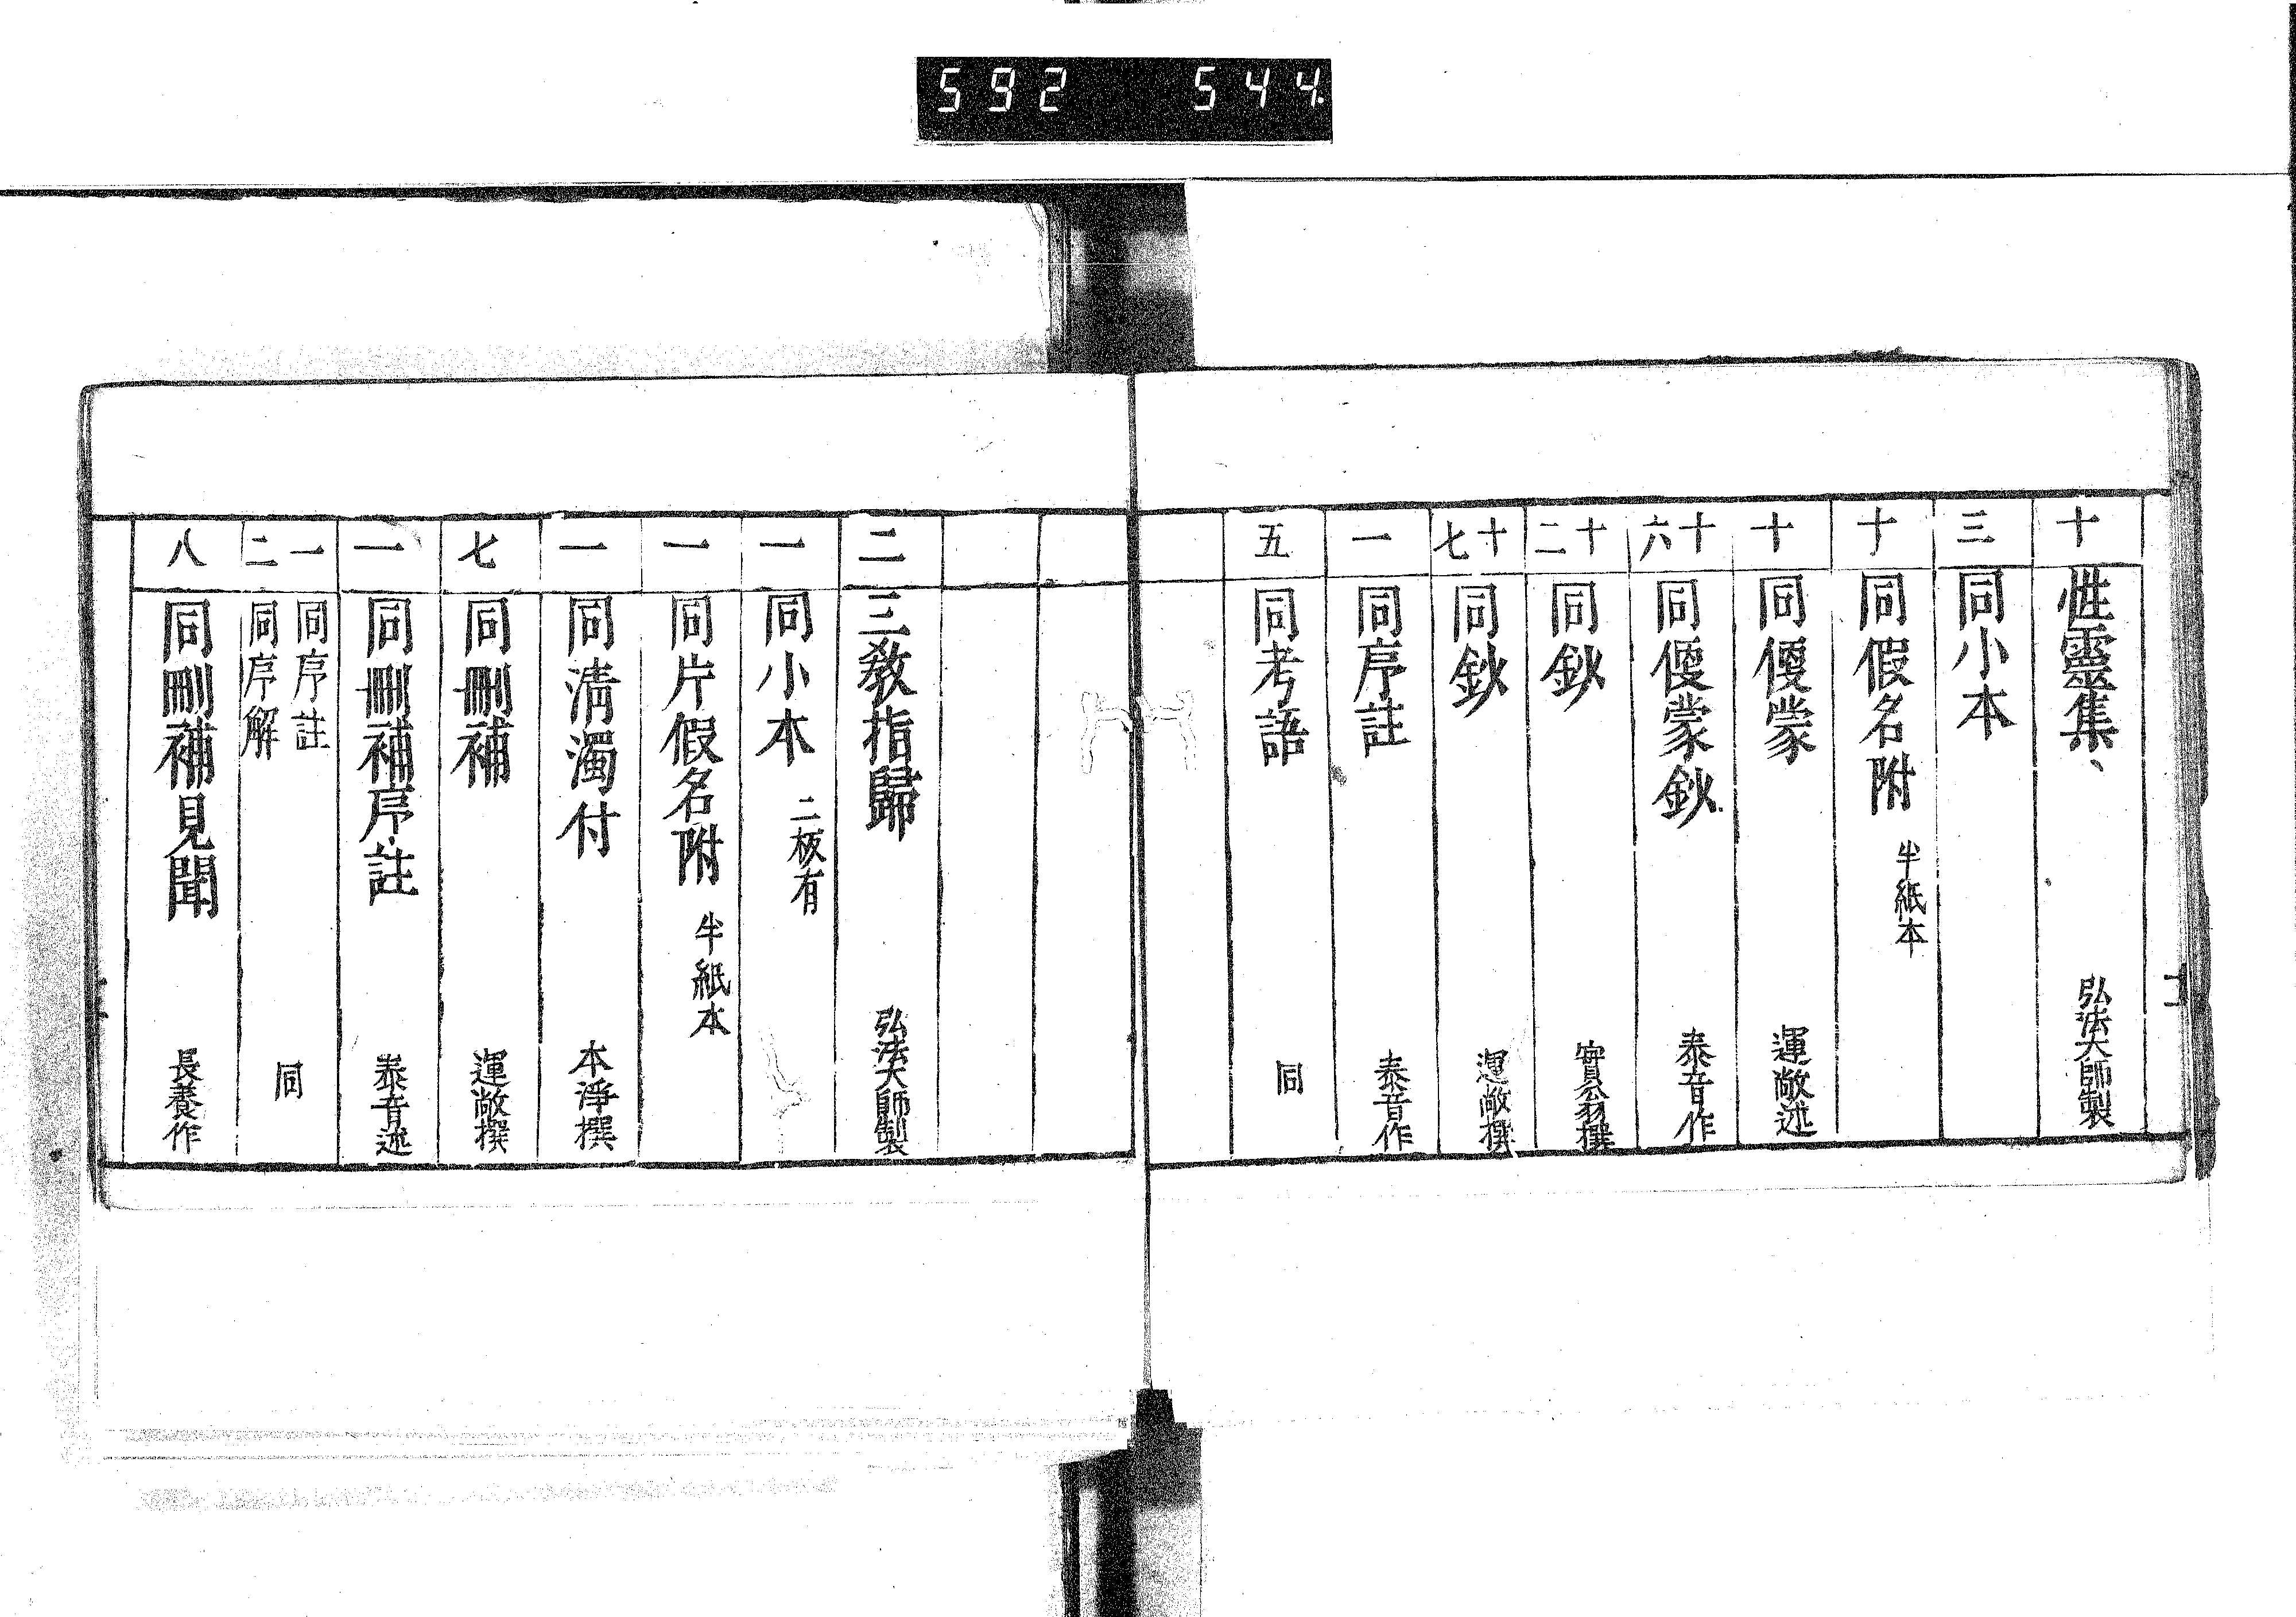 592 544
十 性靈集、 弘法大師製
三 同小本
十 同假名附 半紙本
十 同便蒙 運敞述
十六 同便蒙鈔 泰音作
十二 同鈔 實翁撰
十七 同鈔 運敞撰
一 同序註 泰音作
五 同考語 同
二 三教指歸 弘法大師製
一 同小本 二板有
一 同片假名附 半紙本
一 同淸濁付 本淨撰
七 同刪補 運敞撰
一 同刪補序註 泰音述
一 同序註
二 同序解 同
八 同刪補見聞 長養作